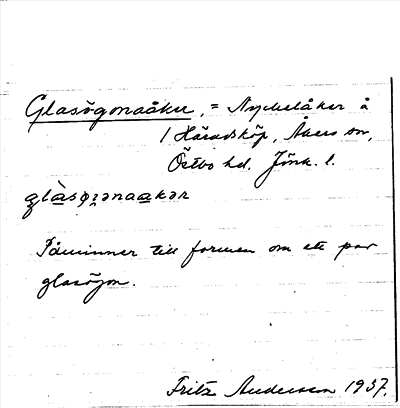 Glasögonaåker, = Nyckelåker å
1 Häradsköp, Åkers sn,
Östbo hd. Jönk. l.
glàsøgønaakər
Påminner till formen om ett par
glasögon.
Fritz Andersson 1937.